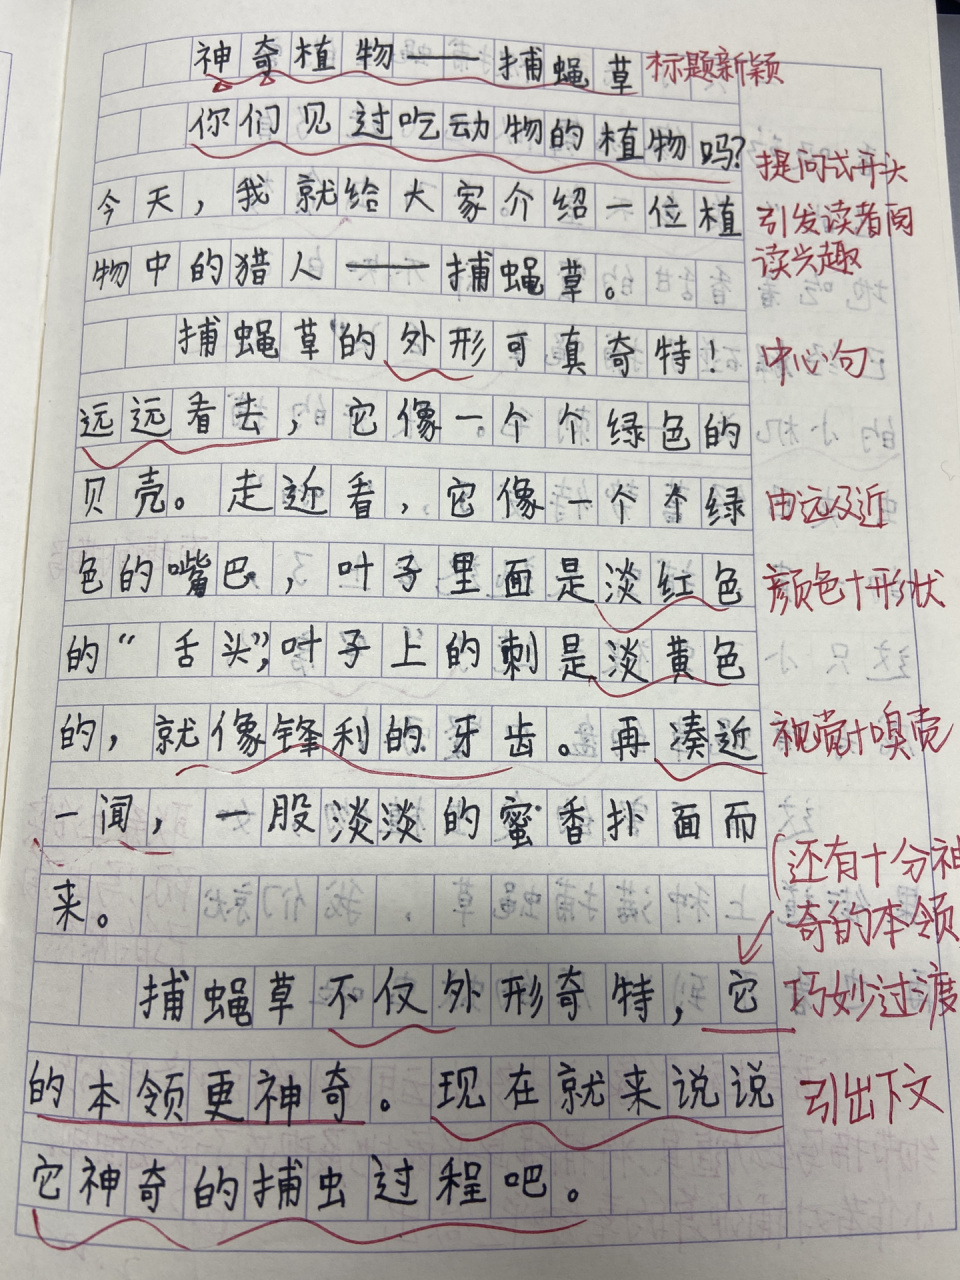 神奇植物——捕蝇草
标题新颖
你们见过吃动物的植物吗?
提问式开头
今天，我就给大家介绍一位植
引发读者阅
物中的猎人——捕蝇草。
读兴趣
捕蝇草的外形可真奇特！
中心句
远远看去，它像一个个绿色的
贝壳。走近看，它像一个个绿
由远及近
色的嘴巴，叶子里面是淡红色
颜色+形状
的“舌头”，叶子上的刺是淡黄色
的，就像锋利的牙齿。再凑近
视觉+嗅觉
一闻，一股淡淡的蜜香扑面而
来。
还有十分神
奇的本领
捕蝇草不仅外形奇特，它
巧妙过渡
的本领更神奇。现在就来说说
引出下文
它神奇的捕虫过程吧。